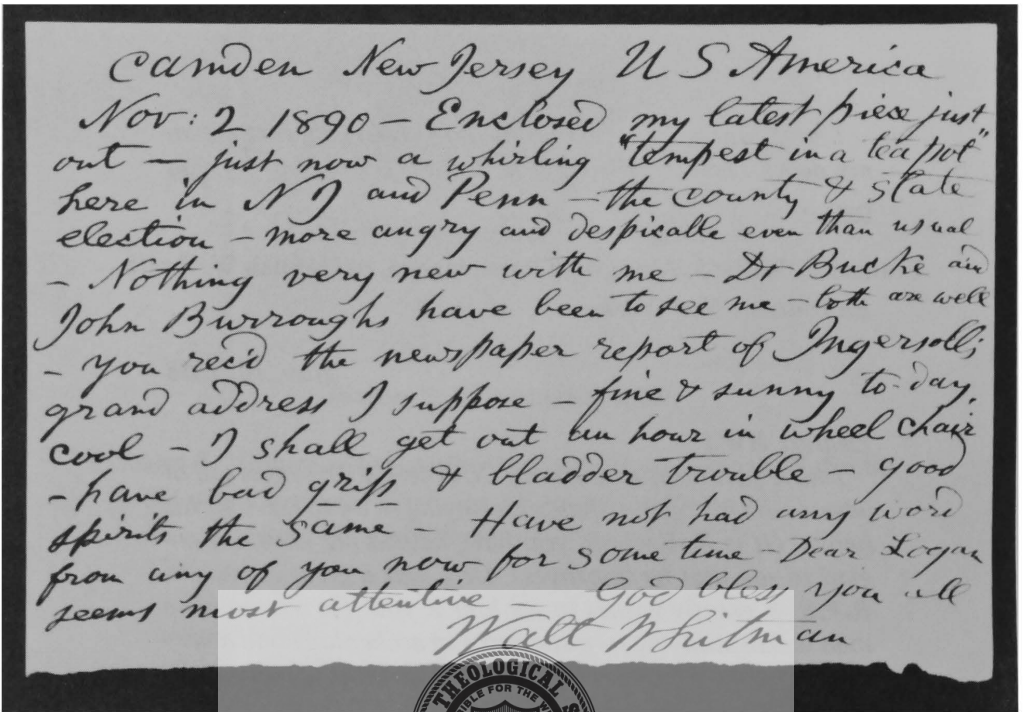 Camden New Jersey U S America
Nov: 2 1890 – Enclosed my latest piece just
out – just now a whirling "tempest in a tea pot"
here in N J and Penn – the county & state
election – more angry and despicable even than usual
– Nothing very new with me – Dr Bucke and
John Burroughs have been to see me – both are well
– you rec'd the newspaper report of Ingersoll's
grand address I suppose – fine & sunny to-day,
cool – I shall get out an hour in wheel chair
– have bad grip & bladder trouble – good
spirits the same – Have not had any word
from any of you now for some time – Dear Logan
seems most attentive – God bless you all
Walt Whitman
THEOLOGICAL S
IBLE FOR THE W